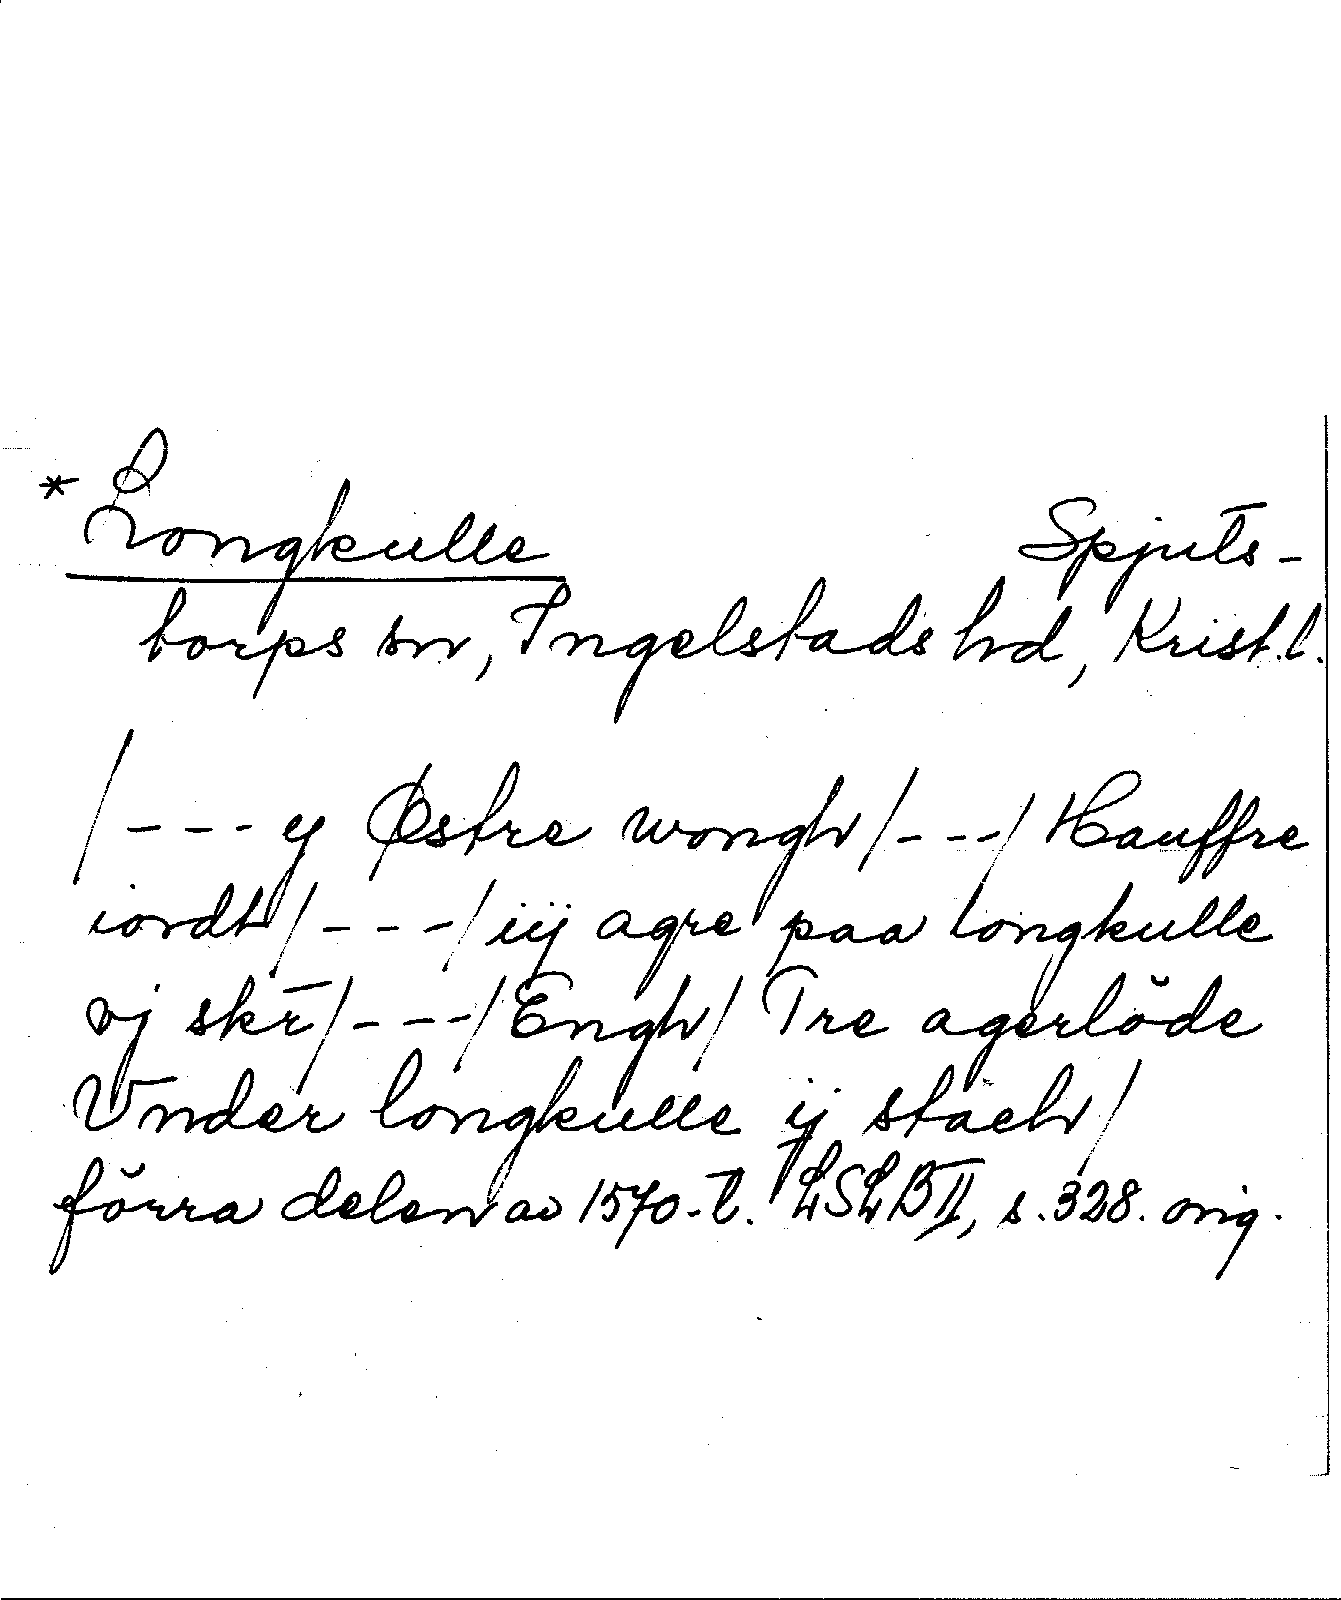 * Longkulle Spjuts-
torps sn, Ingelstads hd, Krist. l.
/---y Østre wongh/---/Hauffre
iordt/---/iij agre paa longkulle
vj skr̄/---/Engh/ Tre agerlöde
Vnder longkulle ij staeh/
förra delen av 1570-t. LSLB II, s. 328. orig.